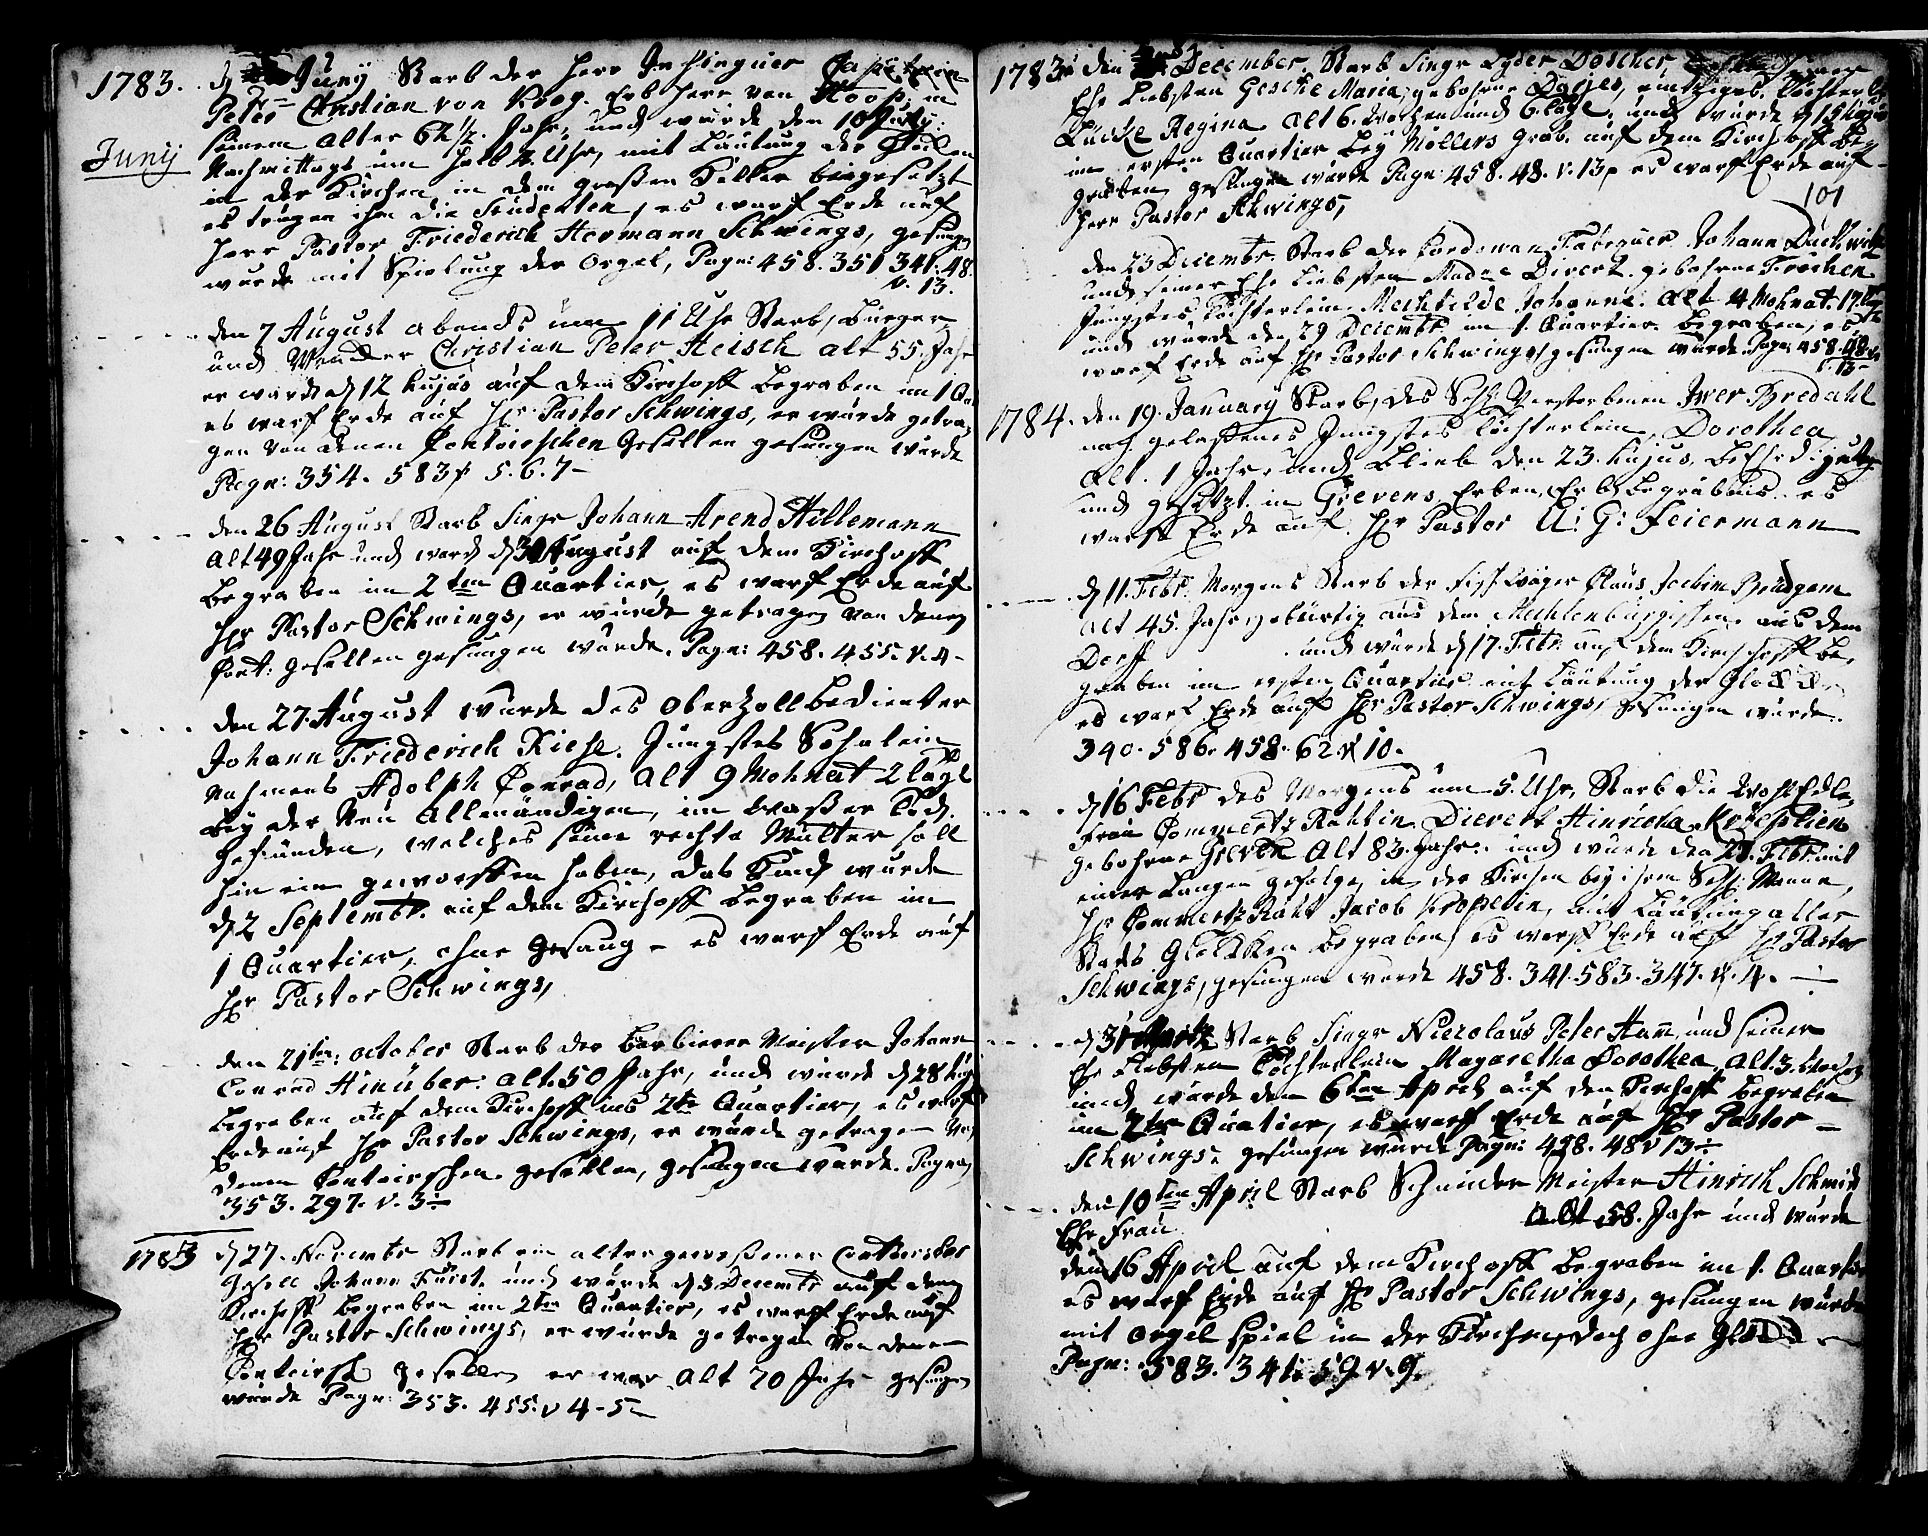 1783. d Juny Starb der Herr Inhinguer Capitein
Peter Christian von Krog. Erb Herr von Stoop, in
Juny
seinem alter 62 1/2. Jahr, und wurde den 10 July
Nachmittags um halb Uhr, mit Läutung der
in der Kirchen in dem großen Keller beigesetzt
es trugen ihn die Studenten, es warf Erde auf
Herr Pastor Friederich Hermann Schwings, gesungen
wurde mit Spielung der Orgel, Pagn: 458. 351 341. 48.
v. 13.
den 7 August abends um 11 Uhr Starb, Burger
und Christian Peter Heisch alt 55. Jahr
er wurde d 12 hujus auf dem Kirchoff begraben im 1 Qu
es warf Erde auf Hr Pastor Schwings, er wurde getra
gen von denen Contoirschen Gesellen gesungen wurde
Pagn: 354. 583 5. 6. 7-
den 26 August Starb Singr Johann Arend Hillemann
Alt 49 Jahr und ward d 30 August auf dem Kirchoff
begraben im 2ten Quartier, es warf Erde auf
Hr Pastor Schwings, er wurde getragen von denen
Cont: gesellen gesungen wurde. Pagn: 458. 455. v. 4-
den 27. August wurde des oberzollbedienter
Johann Friederich Kiese. Jungstes Sohnlein
Nahmens Adolph Conrad, alt 9 Mohnat 2 tage
bey der Neu Allmandigen, im waßer Tod
gefunden, welches seine rechte Mutter soll
hin ein geworffen haben, das Kind wurde
d 2 Septembr. auf dem Kirchoff begraben im
1 Quartier, ohne gesang - es warf Erde auf
Hr Pastor Schwings,
den 21ten: october Starb der barbierer Meister Johann
Conrad Hinuber: alt. 50 Jahr, und wurde d 28 huj
begraben auf dem Kirchoff ins 2te Quartier, es warf
Erde auf Hr Pastor Schwings, er wurde getragen von
denen Contoirschen gesellen, gesungen wurde. Pagna
353. 297. v. 3
1783 d 27. Novembr Starb ein alter geweßener Contoirscher
gesell Johann Fürst. und wurde d 3 Decembr auf dem
Kirchoff begraben im 2ten Quartier, es warff Erde auf
Herr Pastor Schwings, er wurde getragen von denen
Contoirsch gesellen er war alt 70 Jahr gesungen
wurde Pagn: 353. 455. v 4-5
1783 den December, Starb Singr Lyder Doscher,
Ehe Liebsten Gesche Maria, gebohrne Dorjes, eintziges tochterl
Lucke Regina. alt 6. wochen und 6 tage, und wurde d 19 hujus
im ersten Quartier bey Möllers grab. auf dem Kirchoff be
graben, gesungen wurde Pagn: 458. 48. v. 13, es warf Erde auf
Herr Pastor Schwings,
101
den 23 Decembr. Starb der Kordewan Fabriquer Johann Duckwitz
und seiner Ehe Liebsten Madne Divert. gebohrne Froschen
Jungstes tochterlein Mechtilde Johanna. alt 4 Mohnat. 17 tage
und wurde den 29 Decembr im 1. Quartier. begraben, es
warf Erde auf Hr Pastor Schwings, gesungen wurde. Pagn: 458. 48
v. 13
1784. den 19. January Starb, des Sehl Verstorbenen Iwer Bredahl
nachgelaßenes Jungstes tochterlein. Dorothea
Alt. 1 Jahr, und blieb den 23. hujus,
und gesetzt in Grevens Erben, Erb begräbnis. es
warff Erde auf. Hr Pastor U: G: Feiermann
d 11. Febr. Morgens Starb der Claus Jochim
alt 45. Jahr, geburtig aus dem Mechlenburgischen. aus dem
Dorff und wurde d 17. Febr. auf dem Kirchhoff be
graben im ersten Quartier mit Läutung der Glocken
es warf Erde auf Hr Pastor Schwings, gesungen wurde.
340. 586. 458. 62. v 10.
d 16 Febr des Morgens um 5. Uhr, Starb die WohlEdle
Frau Commertz Rahtin, Dievert Hinricha Kröpelien
gebohrne Greven Alt 83. Jahr. und wurde den 23. Febr. mit
einer langen gefolge, in der Kirchen bey ihrem Sehl: Manne,
Hr CommertzRaht Jacob Kropelin, mit Läutung aller
Stads Glockken begraben, es warff Erde auf Hr Pastor
Schwings, gesungen wurde 458. 341. 583. 347. v. 4.
d 31 Martz Starb Singr Nicolaus Peter Ham, und seiner
Ehe Liebsten Tochterlein Magaretha Dorothea, alt. 3. wochen
und wurde den 6ten April auf den Kirchoff begraben
im 2ten Quatier, es warf Erde auf Hr Pastor
Schwings. gesungen wurde Pagn: 458. 48 v 13
den 10ten April Starb Schneider Meister Hinrich Schmidt
Ehe Frau alt 58. Jahr und wurde
den 16 April auf dem Kirchoff begraben im 1. Quartier
es warf Erde auf Hr Pastor Schwings, gesungen wurde
mit orgel Spiel in der Kirchen, doch ohne Glocken
Pagn: 583. 341. 59. v. 9.